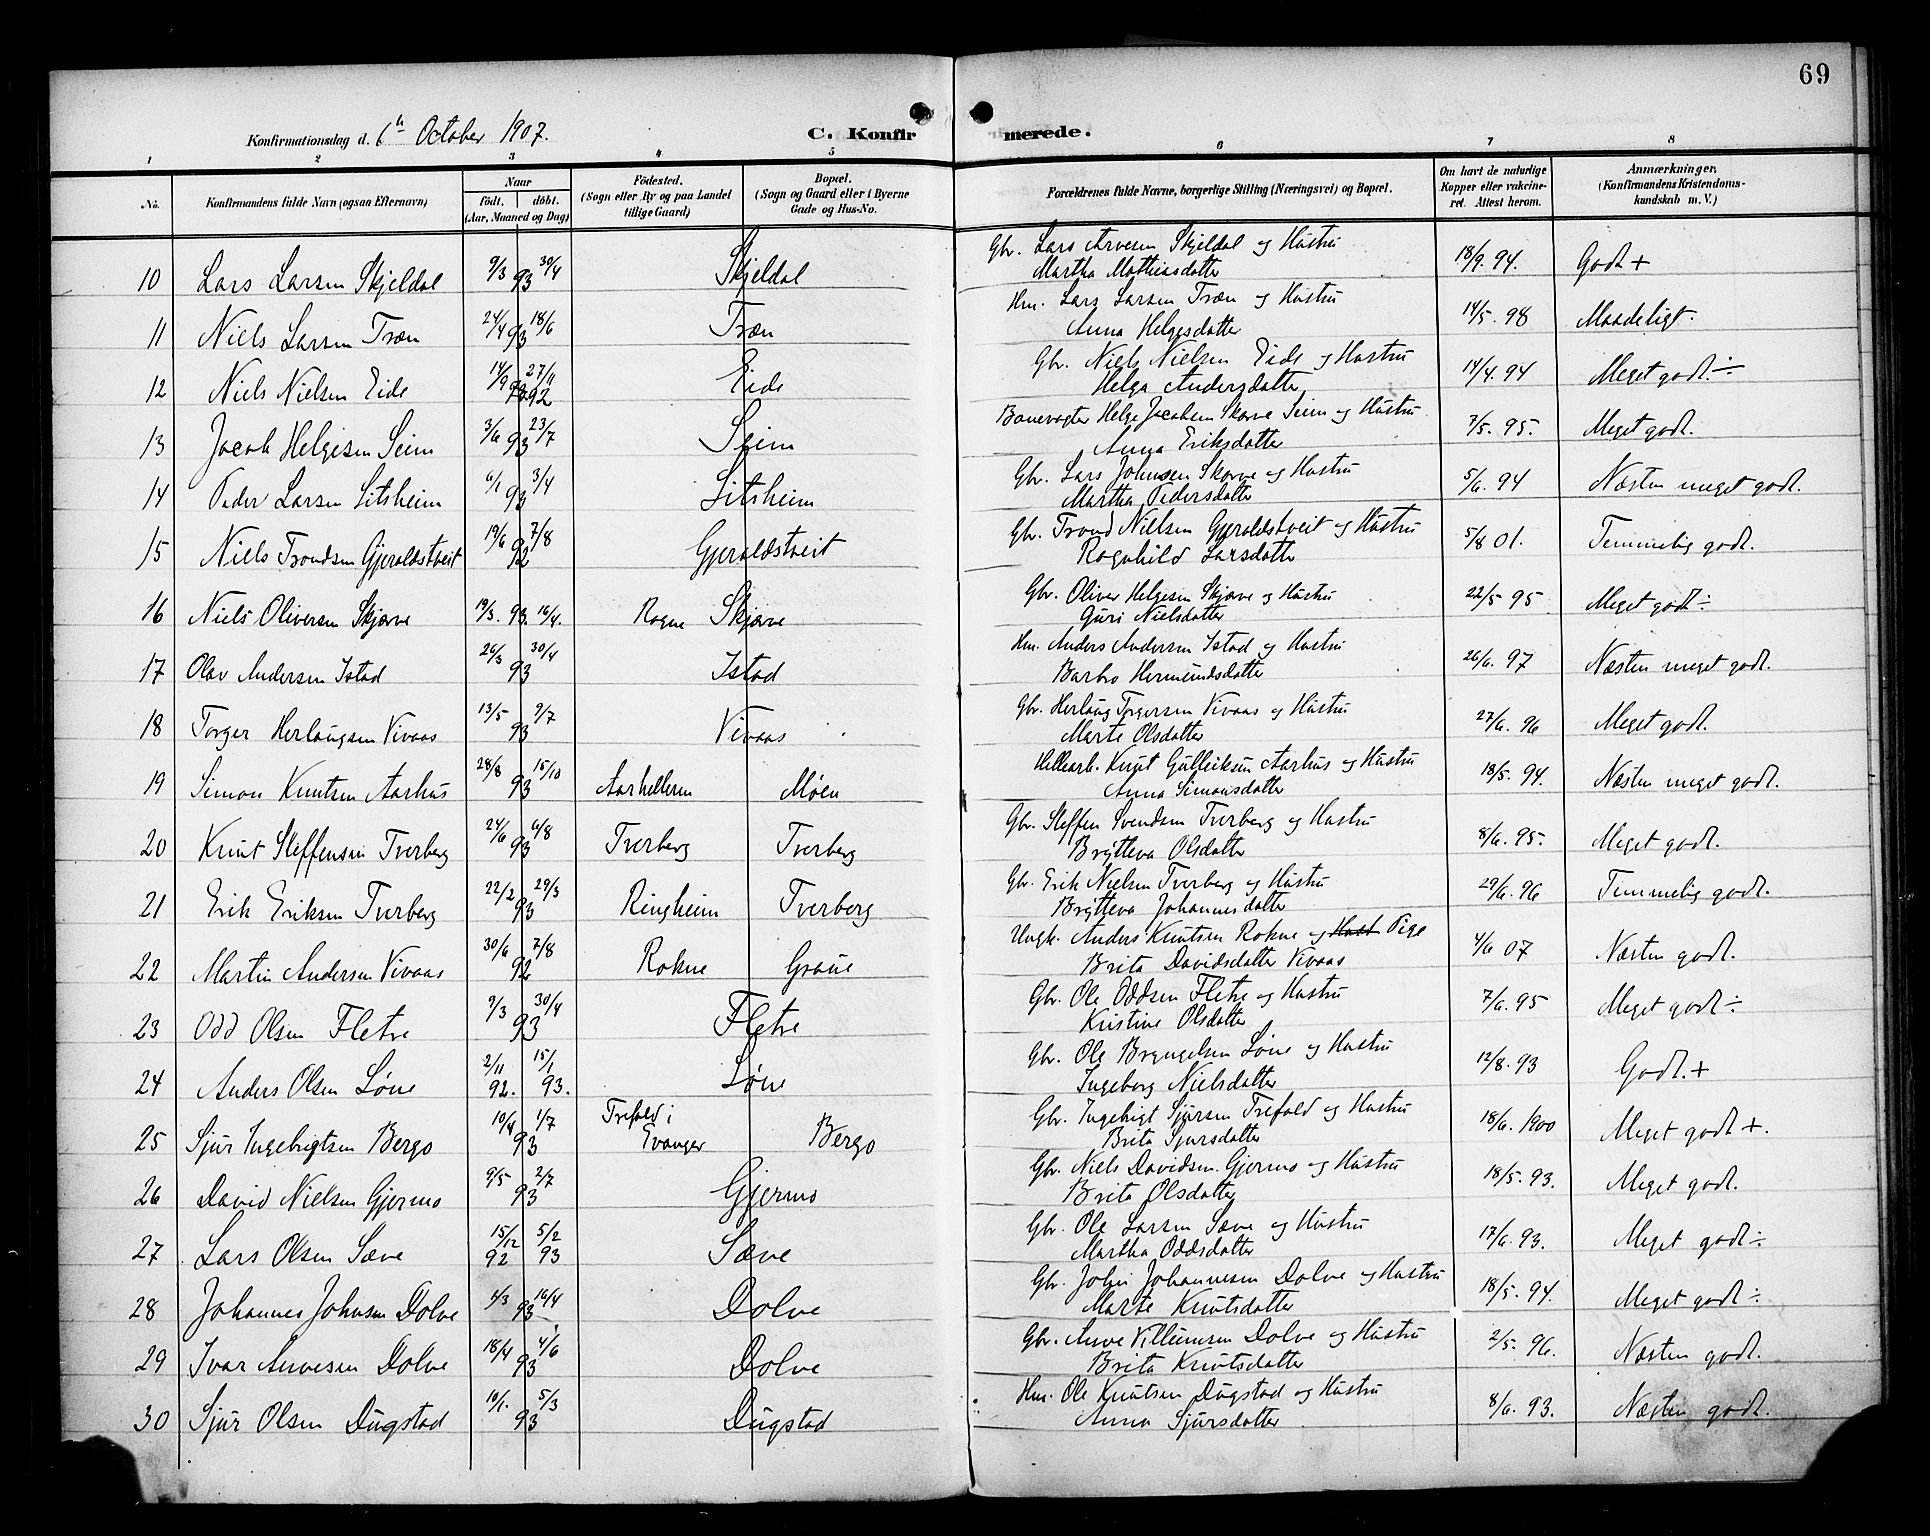 69
Konfirmationsdag d. 6te October 1907.
C. Konfirmerede.
1 2 3 4 5 6 7 8
No. Konfirmandens fulde Navn (ogsaa Efternavn) Naar født. døbt. (Aar, Maaned og Dag) Fødested. (Sogn eller By og paa Landet tillige Gaard) Bopæl. (Sogn og Gaard eller i Byerne Gade og Hus-No. Forældrenes fulde Navne, borgerlige Stilling (Næringsvei) og Bopæl. Om havt de naturlige Kopper eller vakcineret. Attest herom. Anmærkninger. (Konfirmandens Kristendomskundskab m. V.)
10 Lars Larsen Skjeldal 9/3 93 30/4 Skjeldal Gbr. Lars Arvesen Skjeldal og Hustru 18/9. 94. Godt +
Martha Mathiasdatter
11 Niels Larsen Træn 24/4 93 18/6 Træn Hm. Lars Larsen Træn og Hustru 14/5. 98 Maadeligt.
Anna Helgesdatter
12 Niels Nielsen Eide 14/9 92 27/11 Eide Gbr. Niels Nielsen Eide og Hustru 14/4. 94 Meget godt ÷
Helga Andersdatter
13 Jacob Helgesen Seim 3/6 93 23/7 Seim Banevogter Helge Jacobsen Skorve Seim og Hustru 7/5. 95. Meget godt.
Anna Eriksdatter
14 Peder Larsen Sitsheim 6/1 93 3/4 Sitsheim Gbr. Lars Johnsen Skorve og Hustru 5/6. 94 Næsten meget godt.
Martha Pedersdatter
15 Niels Trondsen Gjeraldstveit 19/6 92 7/8 Gjeraldstveit Gbr. Trond Nielsen Gjeraldstveit og Hustru 5/8 01. Temmelig godt.
Ragnhild Larsdatter
16 Niels Oliversen Skjerve 19/3. 93. 16/4. Rogne Skjerve Gbr. Oliver Helgesen Skjerve og Hustru 22/5 95 Meget godt ÷
Guri Nielsdatter
17 Olav Andersen Istad 26/3 93 30/4 Istad Hm. Anders Andersen Istad og Hustru 26/6. 97 Næsten meget godt.
Barbro Hermundsdatter
18 Torger Herlaugsen Vivaas 13/5 93 9/7 Vivaas Gbr. Herlaug Torgersen Vivaas og Hustru 27/6. 96 Meget godt.
Marte Olsdatter
19 Simon Knutsen Aarhus 28/8 93 15/10 Aarhellern Møen Hellearb. Knut Gulleiksen Aarhus og Hustru 18/5. 94. Næsten meget godt.
Anna Simonsdatter
20 Knut Steffensen Tverberg 24/6 93 6/8 Tverberg Tverberg Gbr. Steffen Svendsen Tverberg og Hustru 8/6. 95. Meget godt.
Brytteva Olsdatter
21 Erik Eriksen Tverberg 22/2 93 29/3 Ringheim Tverberg Gbr. Erik Nielsen Tverberg og Hustru 29/6. 96 Temmelig godt.
Brytteva Johannesdatter
22 Martin Andersen Vivaas 30/6 92 7/8 Rokne Graue Ungk. Anders Knutsen Rokne og Hust Pige 4/6 07 Næsten godt.
Brita Davidsdatter Vivaas
23 Odd Olsen Fletre 9/3 93 30/4 Fletre Gbr. Ole Oddsen Fletre og Hustru 7/6. 95 Meget godt ÷
Kristine Olsdatter
24 Anders Olsen Løne 2/11 92. 15/1 93. Løne Gbr. Ole Bryngelsen Løne og Hustru 12/8. 93 Godt. +
Ingeborg Nielsdatter
25 Sjur Ingebrigtsen Bergo 10/4 93 1/7 Trefald i Evanger Bergo Gbr. Ingebrigt Sjursen Trefald og Hustru 18/6. 1900 Meget godt +.
Brita Sjursdatter
26 David Nielsen Gjermo 9/5 93 2/7 Gjermo Gbr. Niels Davidsen Gjermo og Hustru 18/5. 93. Meget godt.
Brita Olsdatter
27 Lars Olsen Sæve 15/12 92 5/2 93 Sæve Gbr. Ole Larsen Sæve og Hustru 17/6. 93. Meget godt ÷
Martha Oddsdatter
28 Johannes Johnsen Dolve 4/3 93 16/4 Dolve Gbr. John Johannesen Dolve og Hustru 18/5. 94. Meget godt ÷
Marte Knutsdatter
29 Ivar Anvesen Dolve 18/4 93 4/6 Dolve Gbr. Anve Villumsen Dolve og Hustru 2/5. 96. Næsten godt.
Brita Knutsdatter
30 Sjur Olsen Dugstad 10/1. 93 5/3 Dugstad Hm. Ole Knutsen Dugstad og Hustru 8/6. 93. Næsten godt.
Anna Sjursdatter